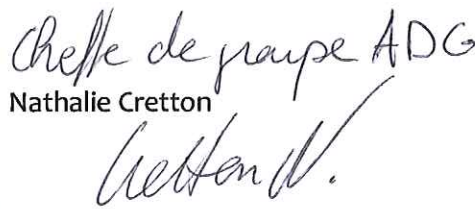 Cheffe de groupe ADG
Nathalie Cretton
Cretton N.